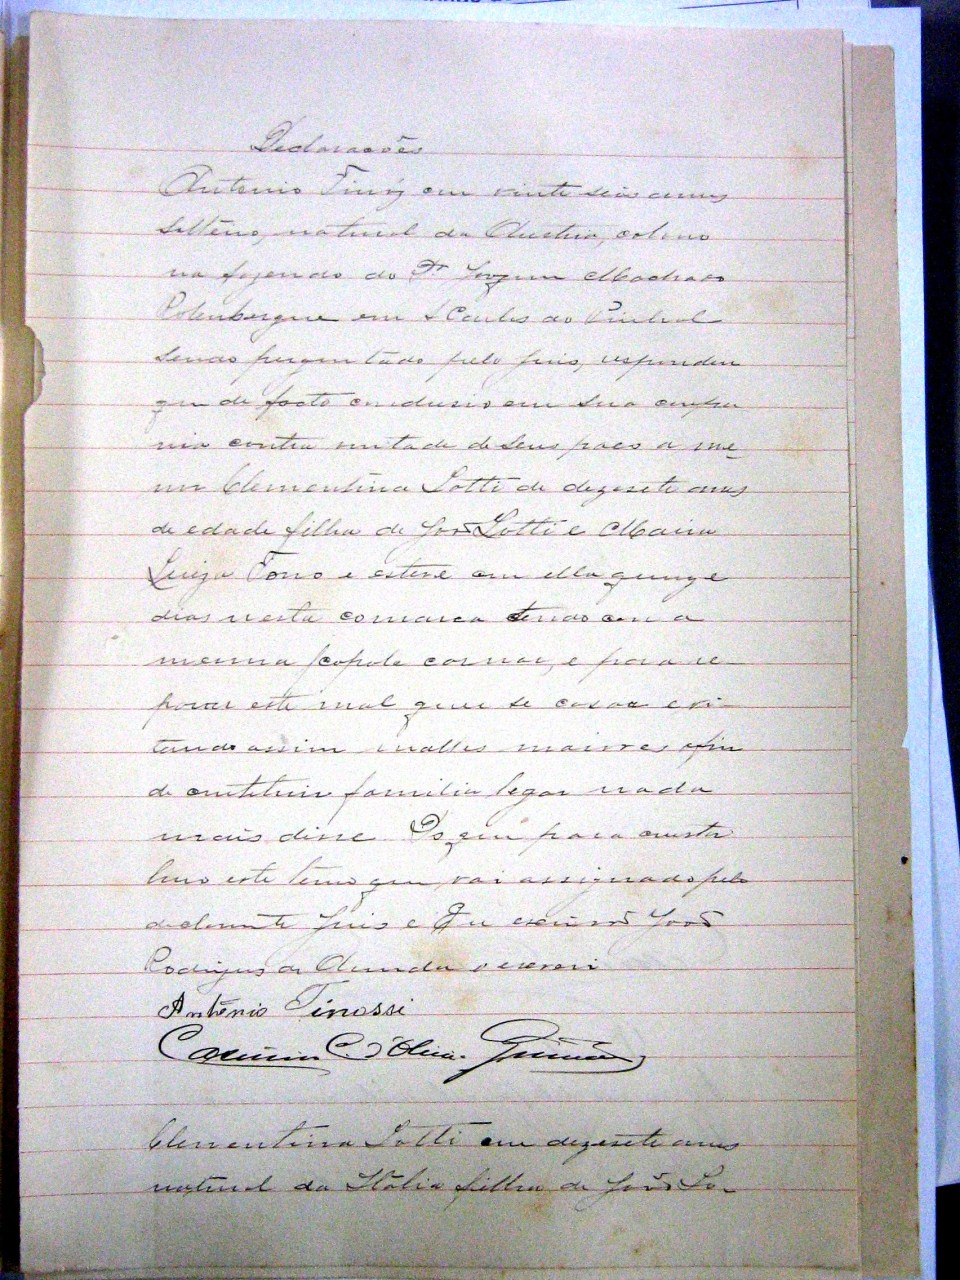 Declarações
Antonio Tinóz com vinte seis annos
solteiro, natural da Austria, colono
na fazenda do Dr Joaquim Machado
em S Carlos do Pinhal
sendo perguntado pelo juis, respondeu
que de facto condusio em sua compa
nia contra vontade de seus paes a me-
nor Clementina Lotti de dezesete annos
de edade filha de João Lotti e Maria
Luiza e esteve com ella quinze
dias nesta comarca tendo com a
mesma copola carnal, e para re-
parar este mal quer se casar evi-
tando assim malles maiores afim
de constituir familia legar nada
mais disse. Do que para constar
lavro este termo que vai assignado pelo
declarante juis e Eu escrivão João
Rodrigues de Almeida o escrevi
Antônio Tinossi
Clementina Lotti com dezesete annos
natural da Itália filha de João Lo-